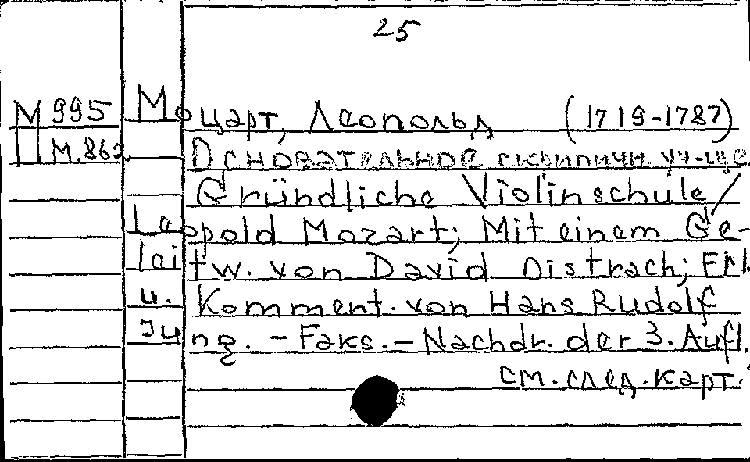 25
М 995 Моцарт, Леопольд (1719-1787)
П М.863 Основательное скрипичн. уч-ще
Gründliche Violinschule /
Leopold Mozart; Mit einem Ge-
leitw. von David Oistrach; Erl.
u. Komment. von Hans Rudolf
Jung. - Faks. - Nachdr. der 3. Aufl.
см. след. карт.